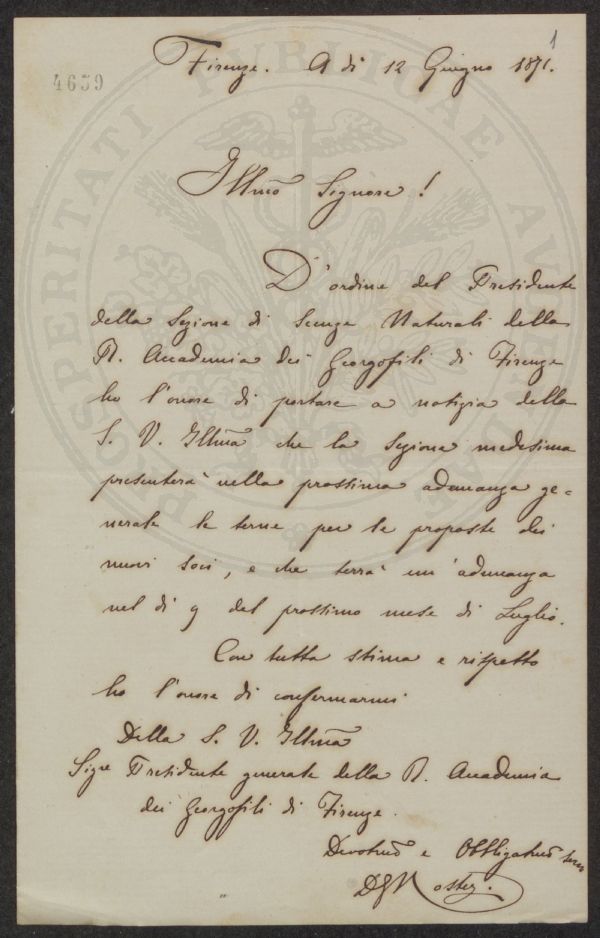 1
4659
Firenze. A dì 12 Giugno 1871.
Illmo Signore!
D'ordine del Presidente
della Sezione di Scienze Naturali della
R. Accademia dei Georgofili di Firenze
ho l'onore di portare a notizia della
S. V. Illma che la Sezione medesima
presenterà nella prossima adunanza ge=
nerale le terne per le proposte dei
nuovi soci, e che terrà un'adunanza
nel dì 9 del prossimo mese di Luglio.
Con tutta stima e rispetto
ho l'onore di confermarmi
Della S. V. Illma
Sigre Presidente generale della R. Accademia
dei Georgofili di Firenze.
Devotmo e Obbligatmo
Roster.
PROSPERITATI PUBLICAE AUGENDAE